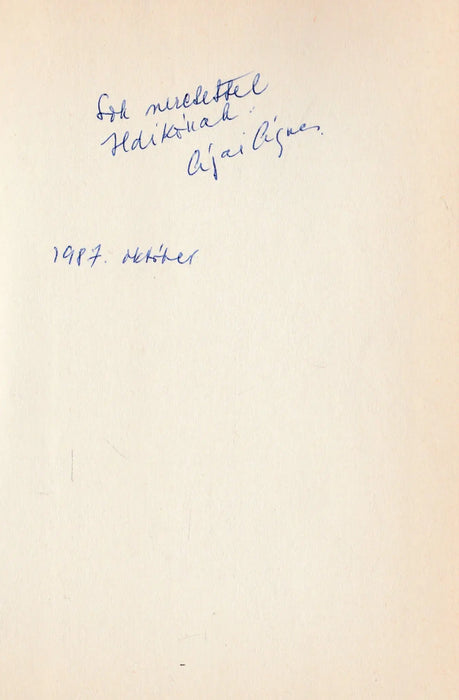 Sok szeretettel
Ildikónak
Ágai Ágnes
1987. október